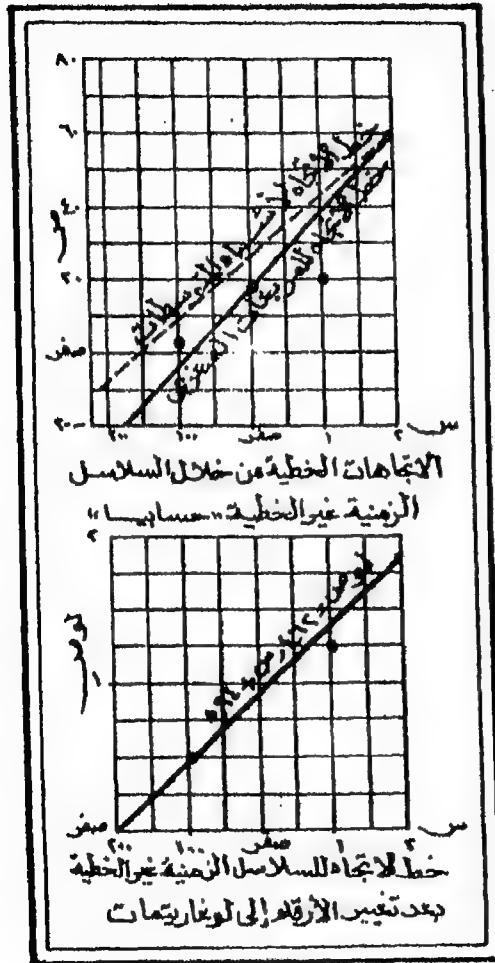 ٨٠
٦٠
٤٠
٢٠
صفر
-٢٠
ص
خط الاتجاه لأشباه المتوسطات
خط الاتجاه للمربعات الصغرى
٢٠٠ ١٠٠ صفر ١ ٢ س
الاتجاهات الخطية من خلال السلاسل
الزمنية غير الخطية "حسابيا"
٢
لو ص
١
صفر
لو ص =
٢٠٠ ١٠٠ صفر ١ ٢ س
خط الاتجاه للسلاسل الزمنية غير الخطية
بعد تغيير الأرقام إلى لوغاريتمات